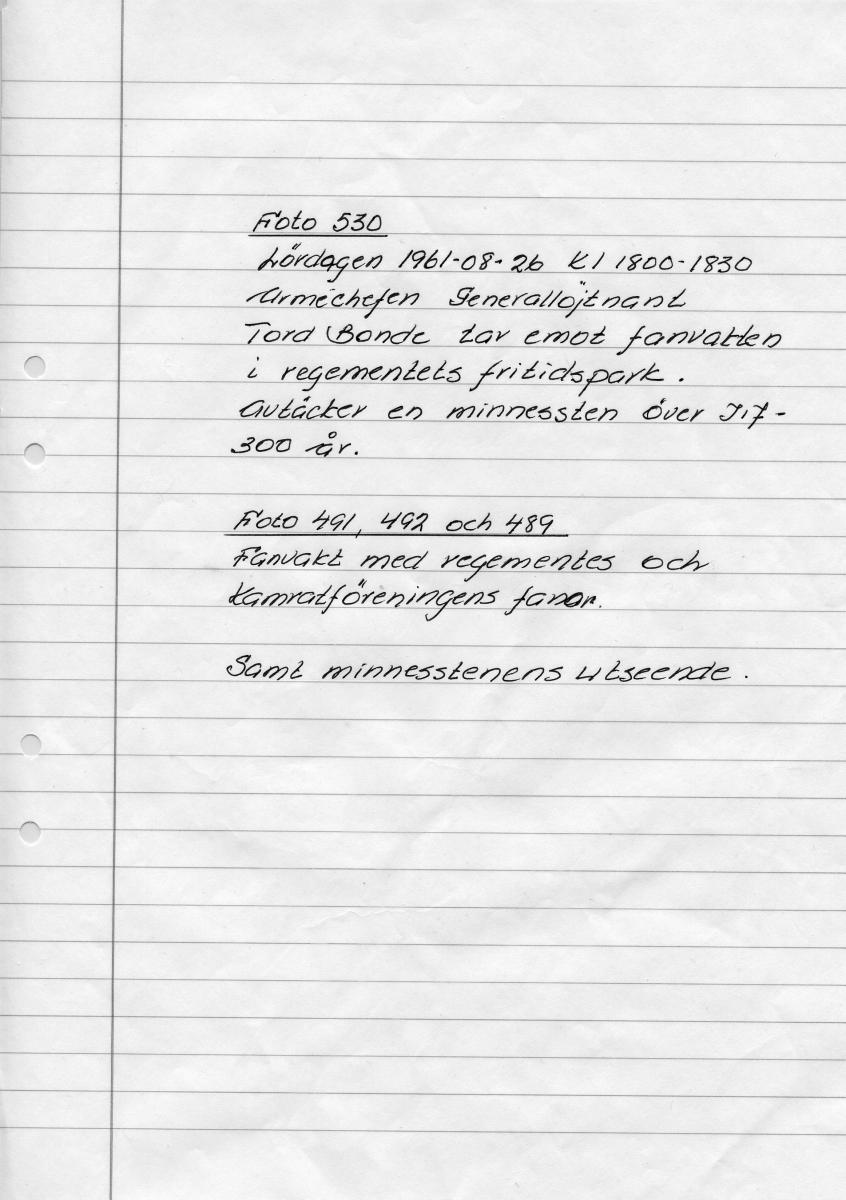 Foto 530
Lördagen 1961-08-26 Kl 1800-1830
Arméchefen Generallöjtnant
Tord Bonde tar emot fanvakten
i regementets fritidspark.
Avtäcker en minnessten över I17-
300 år.
Foto 491, 492 och 489
Fanvakt med regementes och
Kamratföreningens fanor.
Samt minnesstenens utseende.